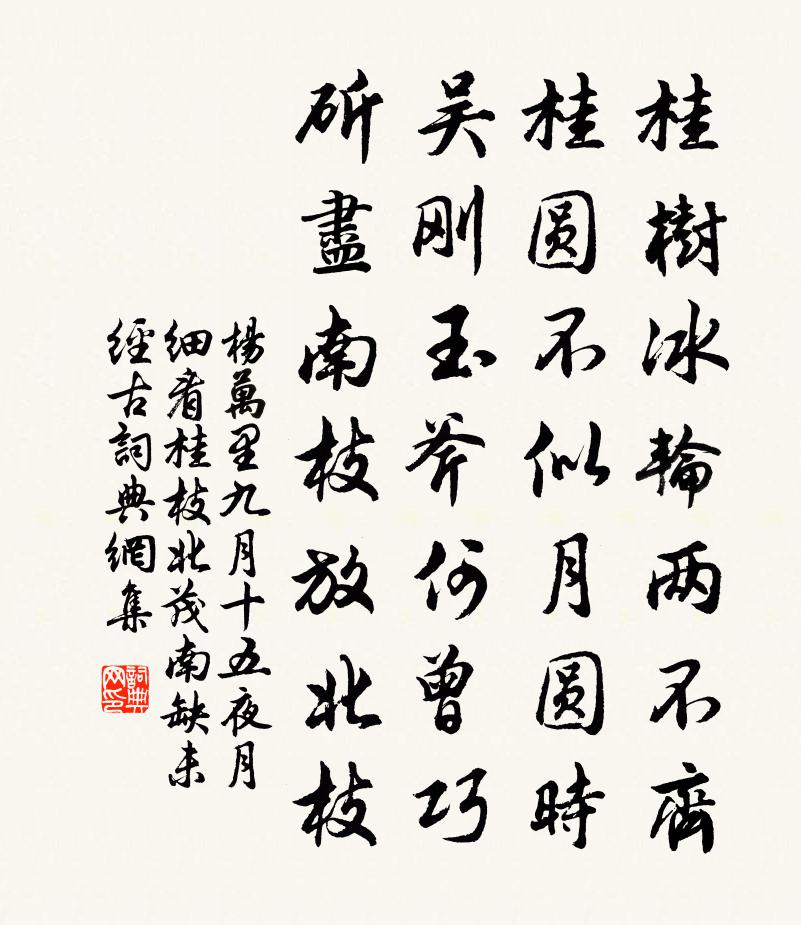 桂樹冰輪两不齊
桂圆不似月圆時
吴刚玉斧何曾巧
斫盡南枝放北枝
楊萬里九月十五夜月
细看桂枝北茂南缺未
經古詞典網集
詞典网印